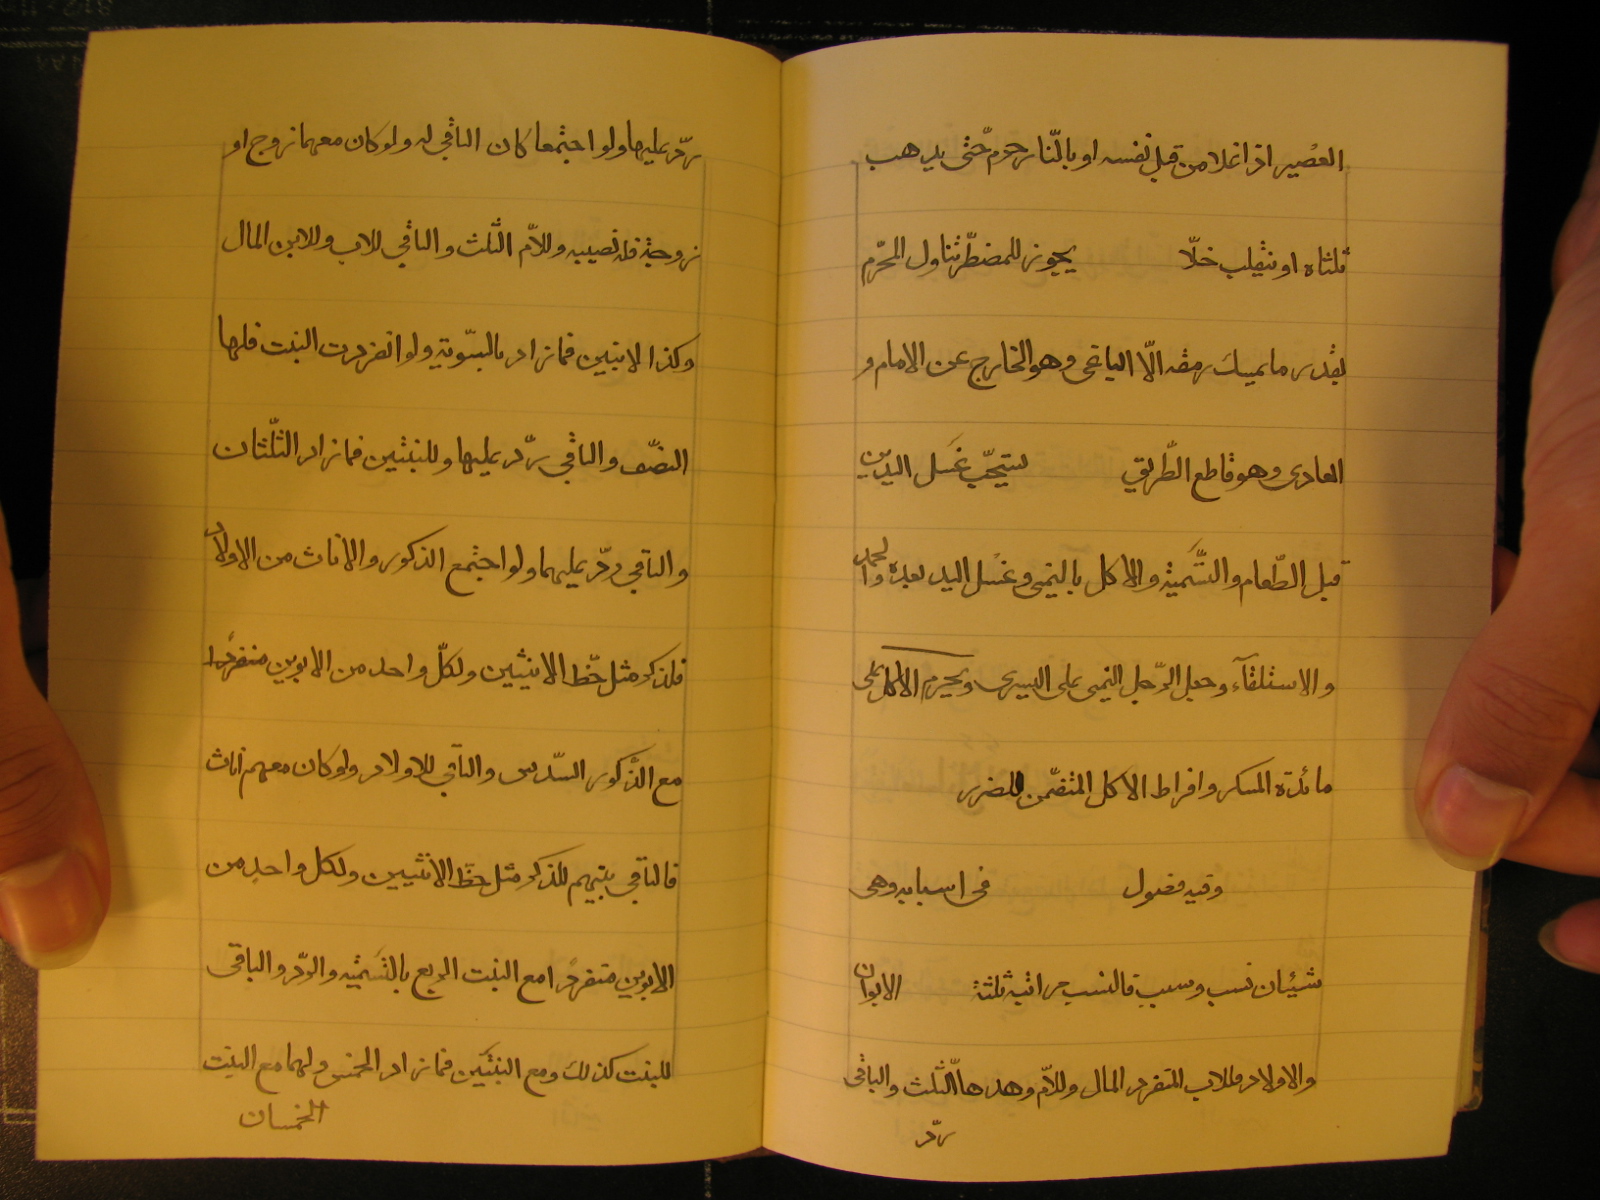 العصير اذا غلا من قبل نفسه او بالنّار حرم حتّى يذهب
ثلثاه او ينقلب خلّا يجوز للمضطرّ تناول المحرّم
بقدر ما يمسك رمقه الّا الباغى وهو الخارج عن الامام و
العادى وهو قاطع الطّريق يستحبّ غَسل اليدين
قبل الطّعام والتّسَمية والاكل باليمنى وغسْل اليد بعده والحمد
والاستلقآء وجعل الرّجل اليمنى على اليسرى ويحرم الاكل على
مائدة المسكر وافراط الاكل المتضمّن للضرر
وفيه فصول فى اسبابه وهى
شيئان نسب وسبب فالنسب مراتبه ثلثة الابوان
والاولاد فللاب المنفرد المال وللاّم وحدها الثّلث والباقى
ردّ
ردّ عليها ولو اجتمعا كان الباقى له ولو كان معهما زوج او
زوجة فله نصيبه وللاّم الثّلث والباقى للاب وللابن المال
وكذا الابنين فما زاد بالسّوية ولو انفردت البنت فلها
النصّف والباقى ردّ عليها وللبنتين فما زاد الثّلثان
والباقى ردّ عليهما ولو اجتمع الذكور والاناث من الاولاد
فللذكر مثل حّظ الانثيين ولكلّ واحد من الابوين منفردا
مع الذّكور السّدس والباقى للاولاد ولو كان معهم اناث
فالباقى بينهم للذكر مثل حظّ الانثيين ولكل واحد من
الابوين منفردا مع البنت الربع بالتّسَمية والردّ والباقى
للبنت كذلك ومع البنتَين فما زاد الخمس ولهما مع البنت
الخمسان